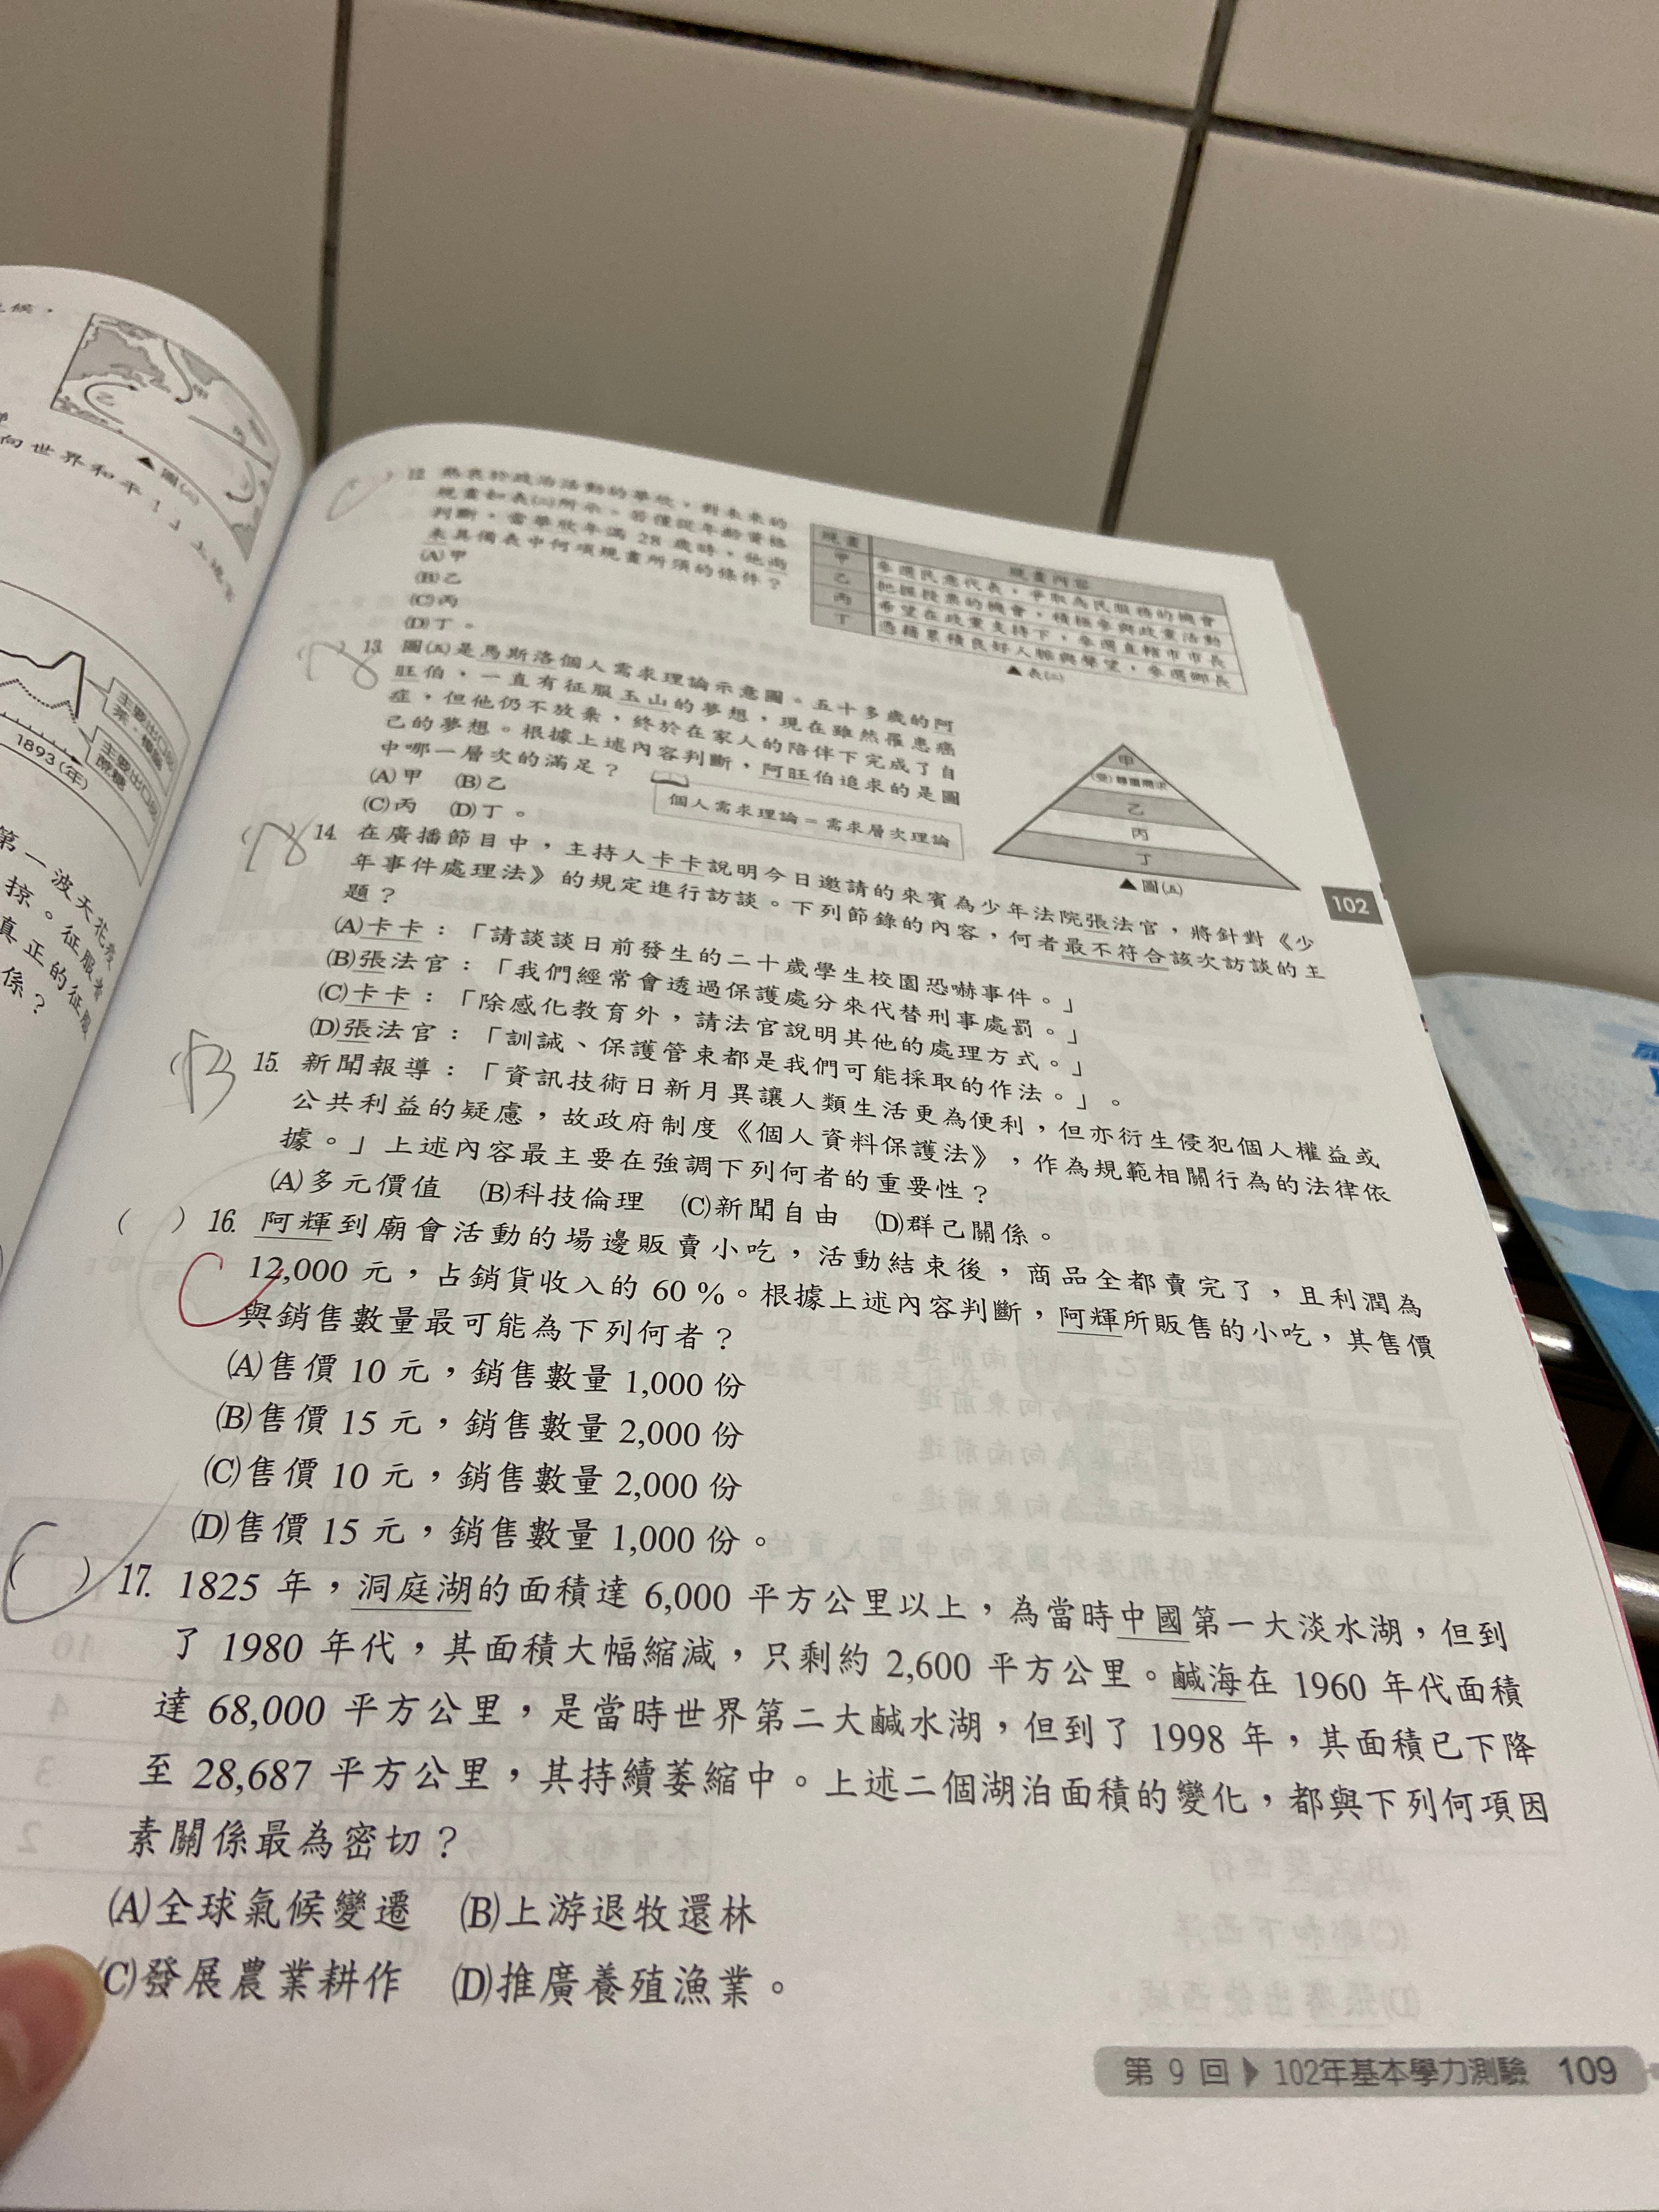 向世界和平！」上述
▲圖(三)
1893(年)
主要出口
茶、樟腦
主要出口
蔗糖
第一波天花
掠。征服者
真正的征服
係？
12. 熱衷於政治活動的華欣，對未來的
規畫如表(二)所示。若僅從年齡資格
判斷，當華欣年滿 28 歲時，他尚
未具備表中何項規畫所須的條件？
(A)甲
(B)乙
(C)丙
(D)丁。
規畫 規畫內容
甲 參選民意代表，爭取為民服務的機會
乙 把握投票的機會，積極參與政黨活動
丙 希望在政黨支持下，參選直轄市市長
丁 憑藉累積良好人脈與聲望，參選鄉長
▲表(二)
13. 圖(五)是馬斯洛個人需求理論示意圖。五十多歲的阿
旺伯，一直有征服玉山的夢想，現在雖然罹患癌
症，但他仍不放棄，終於在家人的陪伴下完成了自
己的夢想。根據上述內容判斷，阿旺伯追求的是圖
中哪一層次的滿足？
(A)甲 (B)乙
(C)丙 (D)丁。
個人需求理論＝需求層次理論
甲
(受)尊重需求
乙
丙
丁
▲圖(五)
102
(A) 14. 在廣播節目中，主持人卡卡說明今日邀請的來賓為少年法院張法官，將針對《少
年事件處理法》的規定進行訪談。下列節錄的內容，何者最不符合該次訪談的主
題？
(A)卡卡：「請談談日前發生的二十歲學生校園恐嚇事件。」
(B)張法官：「我們經常會透過保護處分來代替刑事處罰。」
(C)卡卡：「除感化教育外，請法官說明其他的處理方式。」
(D)張法官：「訓誡、保護管束都是我們可能採取的作法。」。
(B) 15. 新聞報導：「資訊技術日新月異讓人類生活更為便利，但亦衍生侵犯個人權益或
公共利益的疑慮，故政府制度《個人資料保護法》，作為規範相關行為的法律依
據。」上述內容最主要在強調下列何者的重要性？
(A)多元價值 (B)科技倫理 (C)新聞自由 (D)群己關係。
( ) 16. 阿輝到廟會活動的場邊販賣小吃，活動結束後，商品全都賣完了，且利潤為
C 12,000 元，占銷貨收入的 60 %。根據上述內容判斷，阿輝所販售的小吃，其售價
與銷售數量最可能為下列何者？
(A)售價 10 元，銷售數量 1,000 份
(B)售價 15 元，銷售數量 2,000 份
(C)售價 10 元，銷售數量 2,000 份
(D)售價 15 元，銷售數量 1,000 份。
(C) 17. 1825 年，洞庭湖的面積達 6,000 平方公里以上，為當時中國第一大淡水湖，但到
了 1980 年代，其面積大幅縮減，只剩約 2,600 平方公里。鹹海在 1960 年代面積
達 68,000 平方公里，是當時世界第二大鹹水湖，但到了 1998 年，其面積已下降
至 28,687 平方公里，其持續萎縮中。上述二個湖泊面積的變化，都與下列何項因
素關係最為密切？
(A)全球氣候變遷 (B)上游退牧還林
(C)發展農業耕作 (D)推廣養殖漁業。
第 9 回 ▶ 102年基本學力測驗 109